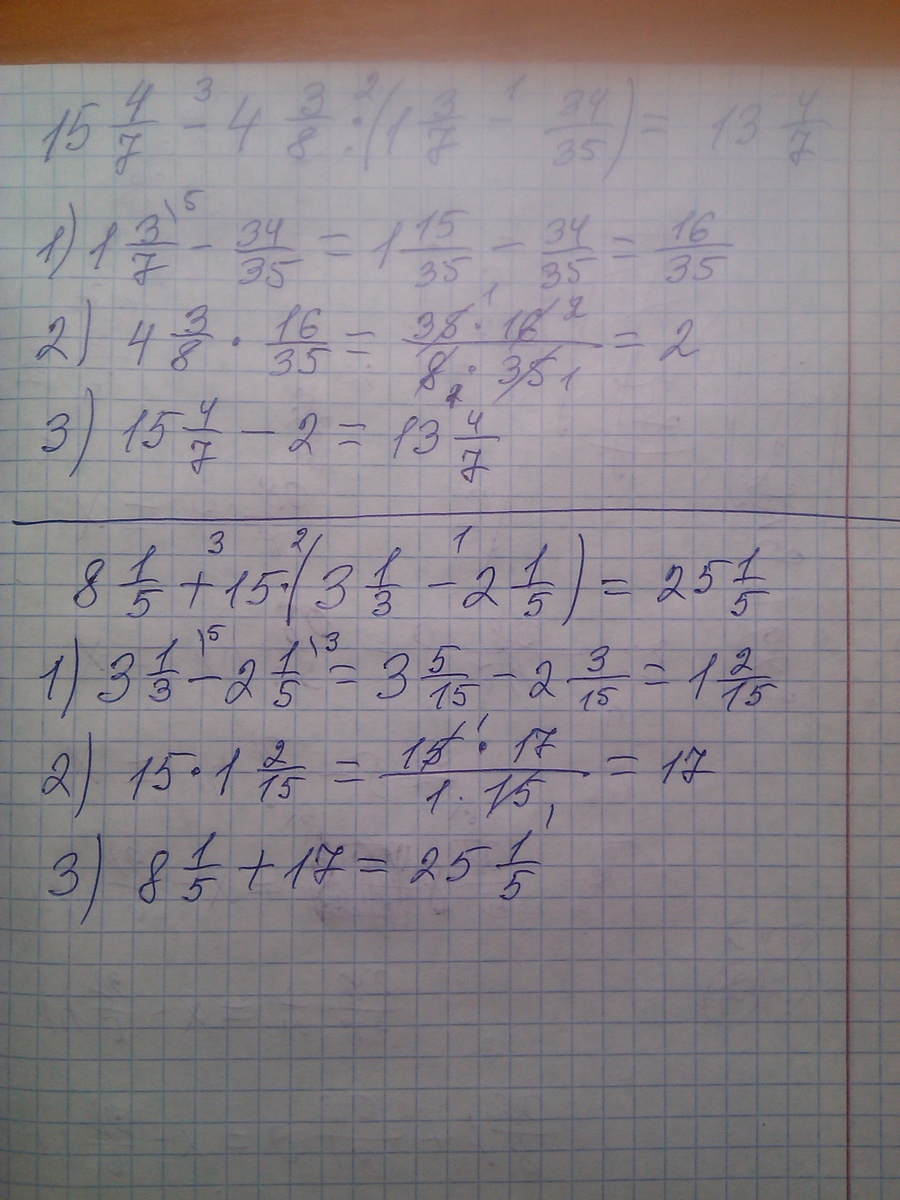 15 4/7 - 4 3/8 · (1 3/7 - 34/35) = 13 4/7
1) 1 3/7 \5 - 34/35 = 1 15/35 - 34/35 = 16/35
2) 4 3/8 · 16/35 = 35 · 16 / 8 · 35 = 2
3) 15 4/7 - 2 = 13 4/7
8 1/5 + 15 · (3 1/3 - 2 1/5) = 25 1/5
1) 3 1/3 \5 - 2 1/5 \3 = 3 5/15 - 2 3/15 = 1 2/15
2) 15 · 1 2/15 = 15 · 17 / 1 · 15 = 17
3) 8 1/5 + 17 = 25 1/5